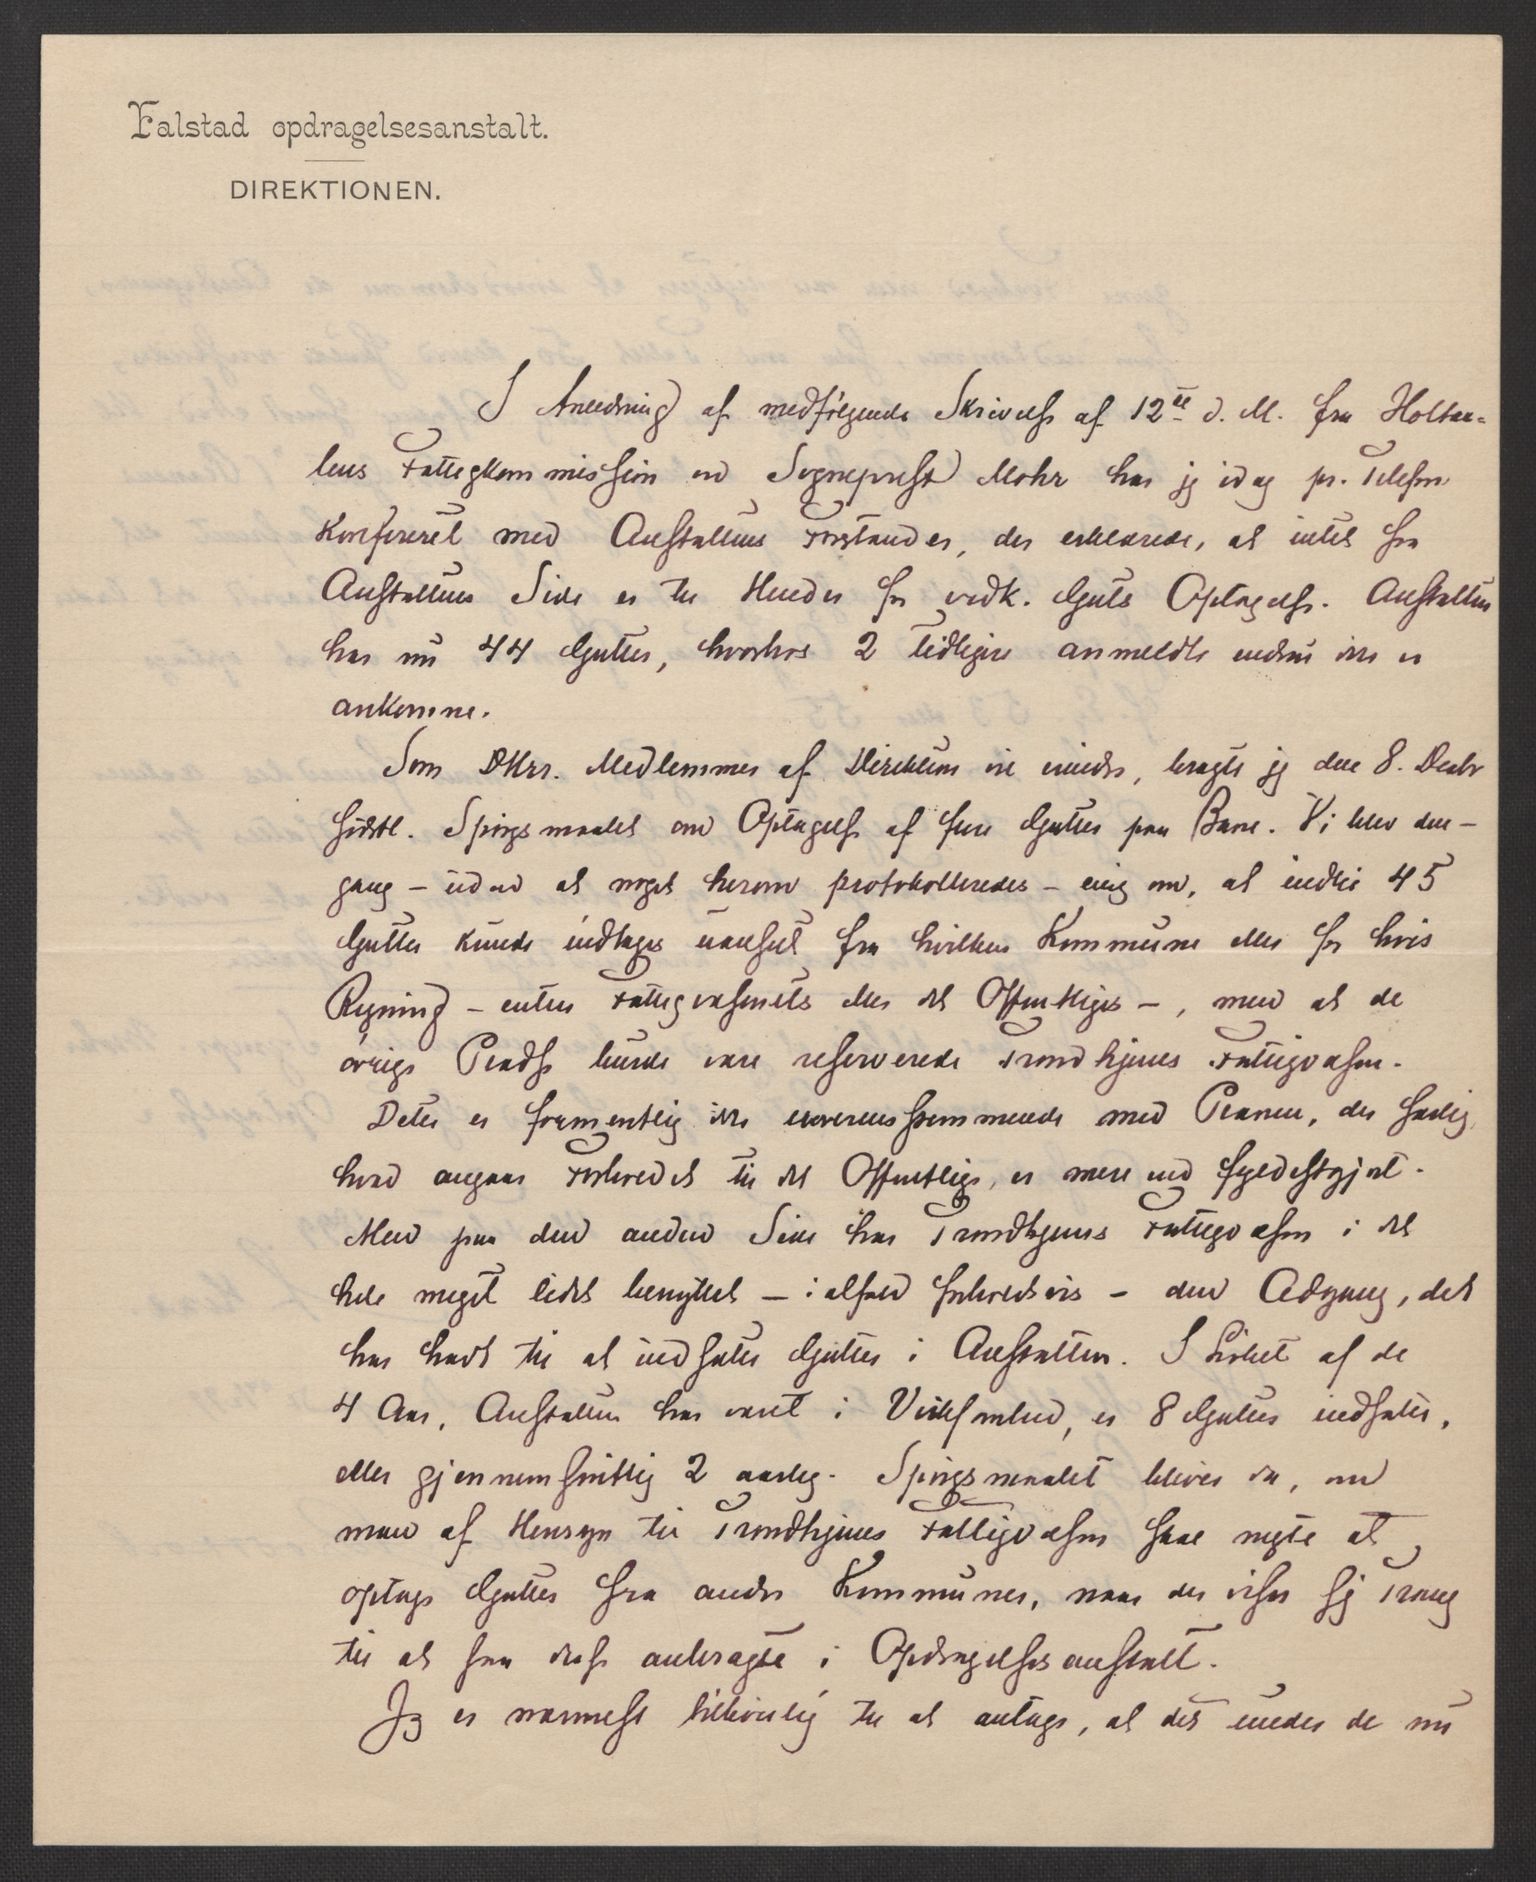 Falstad opdragelsesanstalt.
DIREKTIONEN.
I Anledning af medfølgende Skrivelse af 12te d. M. fra Holtaa-
lens Fattigkommission ved Sogneprest Mohr har jeg idag pr. Telefon
konfereret med Anstaltens Forstander, der erklærede, at intet fra
Anstaltens Side er til Hinder for vedk. Guts Optagelse. Anstalten
har nu 44 Gutter, hvorhos 2 tidligere anmeldte endnu ikke er
ankomne.
Som DHrr. Medlemmer af Direktionen vil erindre, bragte jeg den 8. Decbr
sidstl. Spørgsmaalet om Optagelse af flere Gutter paa Bane. Vi blev den-
gang – uden at noget herom protokolleredes – enig om, at indtil 45
Gutter kunde indtages uanseet fra hvilken Kommune eller for hvis
Regning – enten Fattigvæsenets eller det Offentliges –, men at de
øvrige Pladse burde være reserverede Trondhjems Fattigvæsen.
Dette er formentlig ikke overensstemmende med Planen, der særlig,
hvad angaar Forholdet til det Offentlige, er mere end fyldestgjort.
Men paa den anden Side har Trondhjems Fattigvæsen i det
hele meget lidet benyttet – i alfald forholdsvis – den Adgang, det
har havt til at indsætte Gutter i Anstalten. I Løbet af de
4 Aar, Anstalten har været i Virksomhed, er 8 Gutter indsatte,
eller gjennemsnitlig 2 aarlig. Spørgsmaalet bliver da, om
man af Hensyn til Trondhjems Fattigvæsen skal negte at
optage Gutter fra andre Kommuner, naar der viser sig Trang
til at faa disse anbragte i Opdragelsesanstalt.
Jeg er nærmest tilbøielig til at antage, at det under de nu